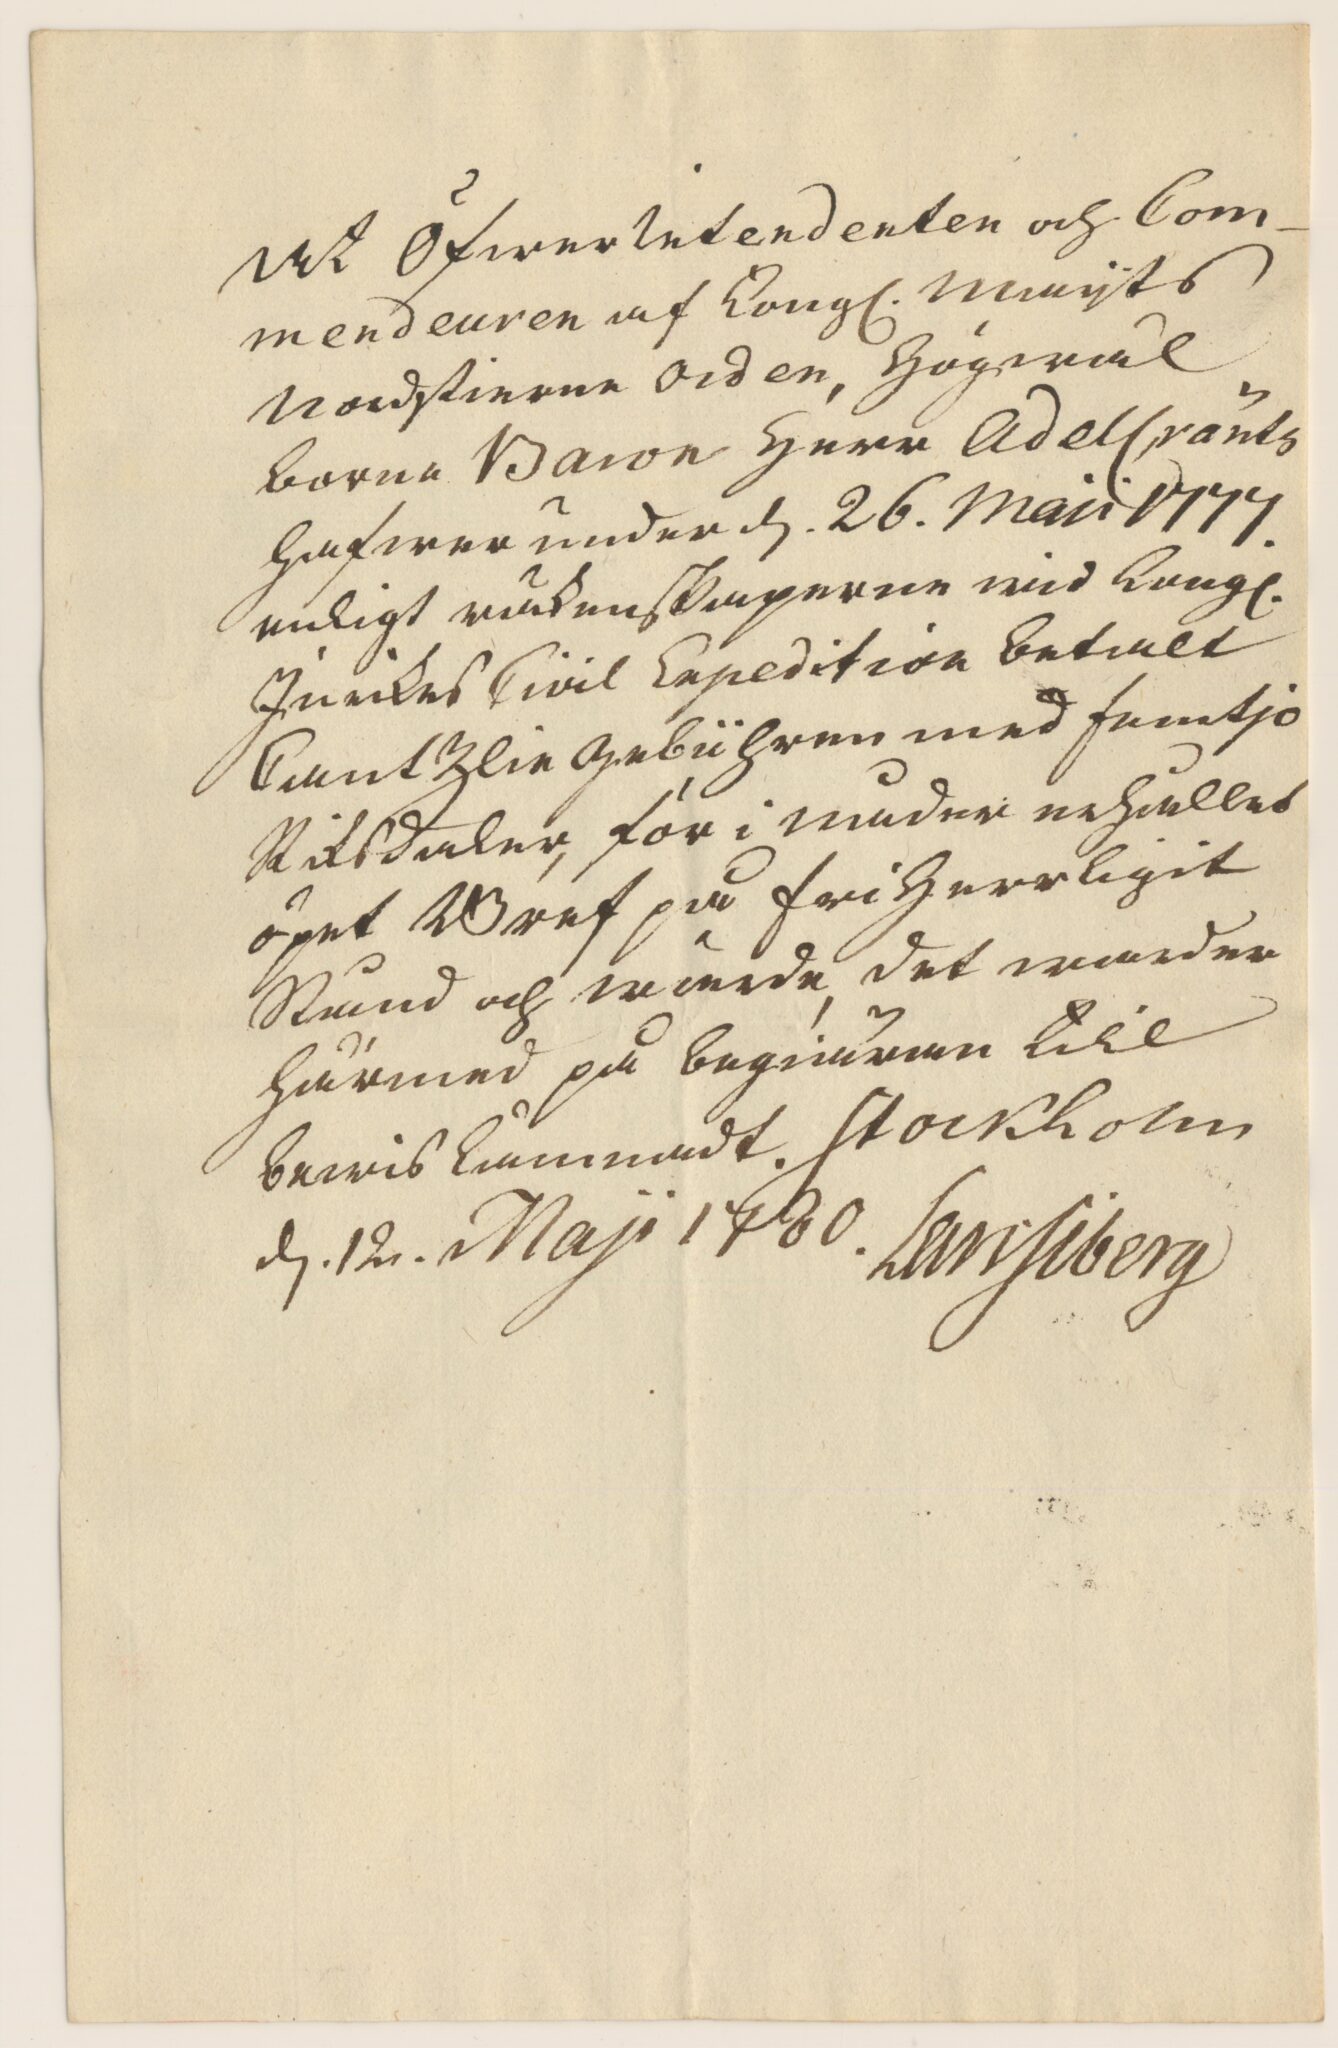 Att Öfwer Intendenten och Com-
mendeuren af Kongl. Maijts
Nordstierne Orden, Högwäl
borne Baron Herr AdelCrantz
hafwer under d. 26. Maji 1777.
enligt räkenskaperne wid Kongl.
Inrikes Civil Expedition betalt
CantZlie Gebühren med femtjo
Riksdaler, för i nåder erhållet
öpet Bref på friherrligit
Stånd och wärde, det warder
härmed på begiäran till
bewis lämnadt. Stockholm
d. 12. Maji 1780.